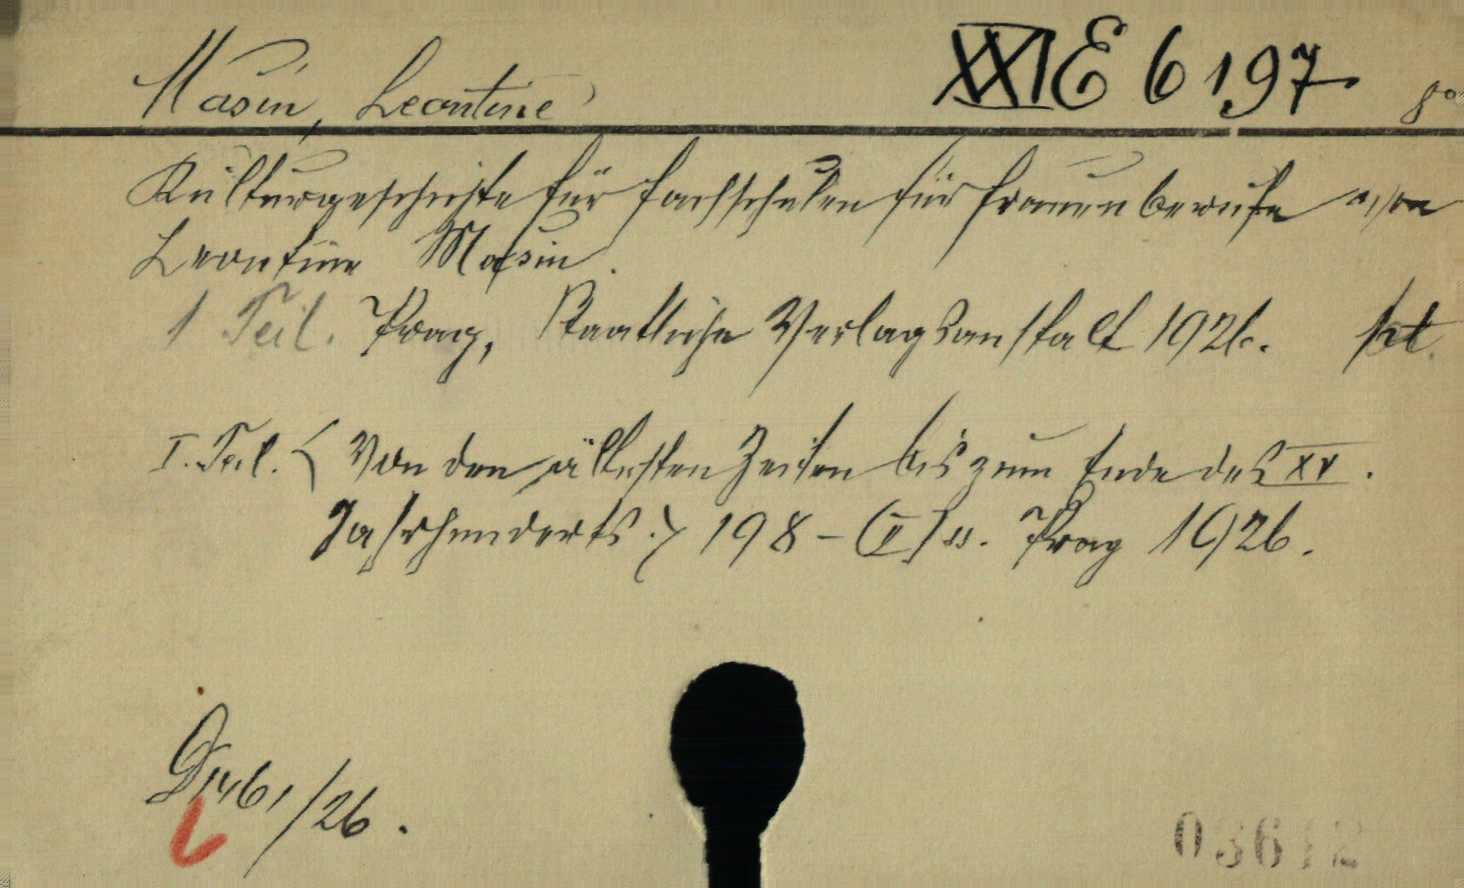 Masin, Leontine XXI E 6197 8°
Kulturgeschichte für Fachschulen für Frauenberufe von
Leontine Masin.
1 Teil. Prag, Staatliche Verlagsanstalt 1926.
I. Teil. < Von den ältesten Zeiten bis zum Ende des XV.
Jahrhunderts.> 198 - (II) S. Prag 1926.
/26.
03612